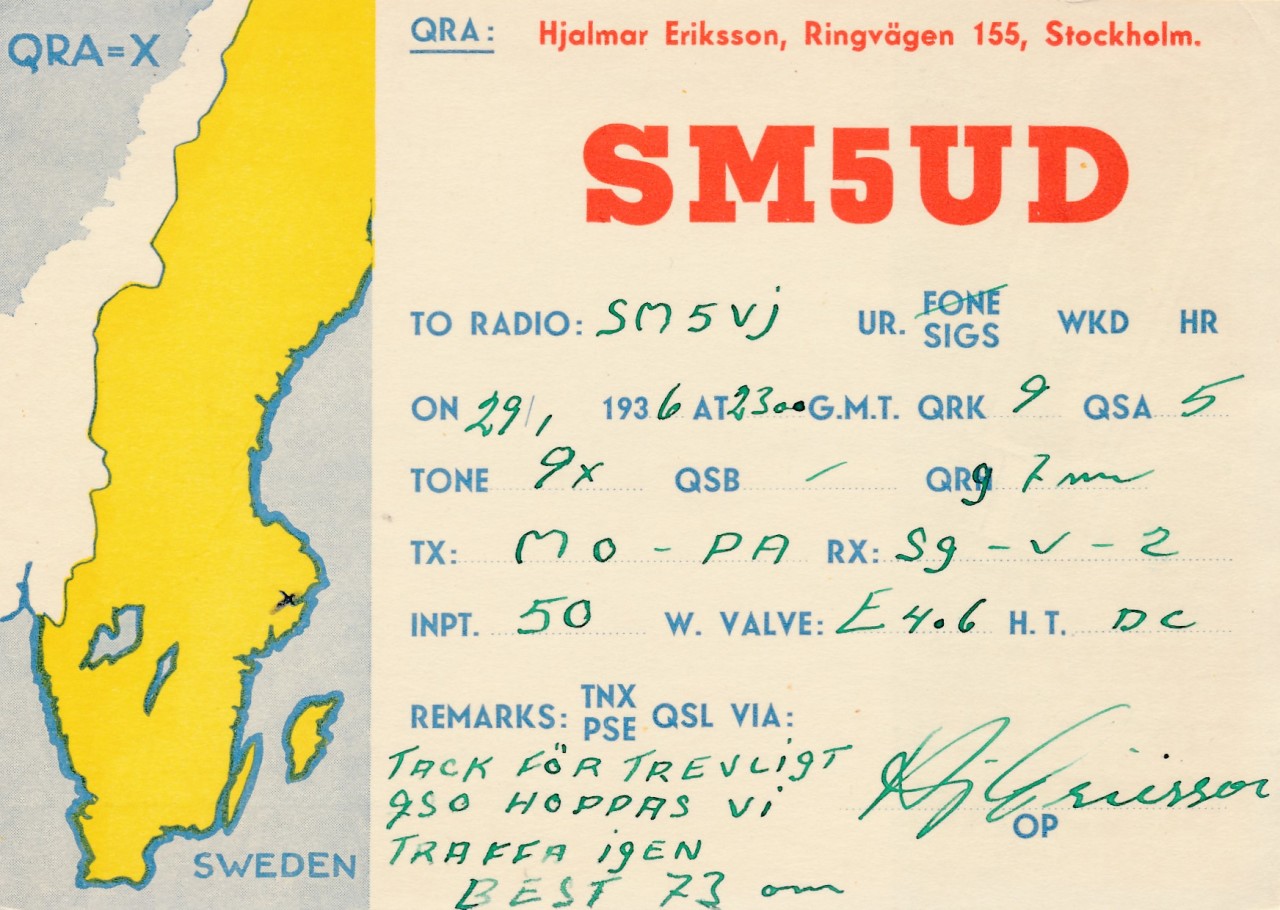 QRA=X
QRA: Hjalmar Eriksson, Ringvägen 155, Stockholm.
SM5UD
TO RADIO: SM5VJ UR. FONE SIGS WKD HR
ON 29/1 1936 AT 2300 G.M.T. QRK 9 QSA 5
TONE 9x QSB - QRG 7 m
TX: MO - PA RX: Sg - V - 2
INPT. 50 W. VALVE: E4.6 H.T. DC
REMARKS: TNX PSE QSL VIA:
TACK FÖR TREVLIGT
QSO HOPPAS Vi
TRAFFA iGEN
BEST 73 om
Hj Ericsson
OP
SWEDEN